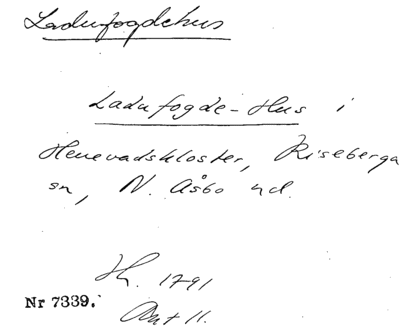 Ladufogdehus
Ladufogde-Hus i
Herrevadskloster, Riseberga
sn, N. Åsbo hd.
Hh. 1791
Nr 7339.
Ant 11.